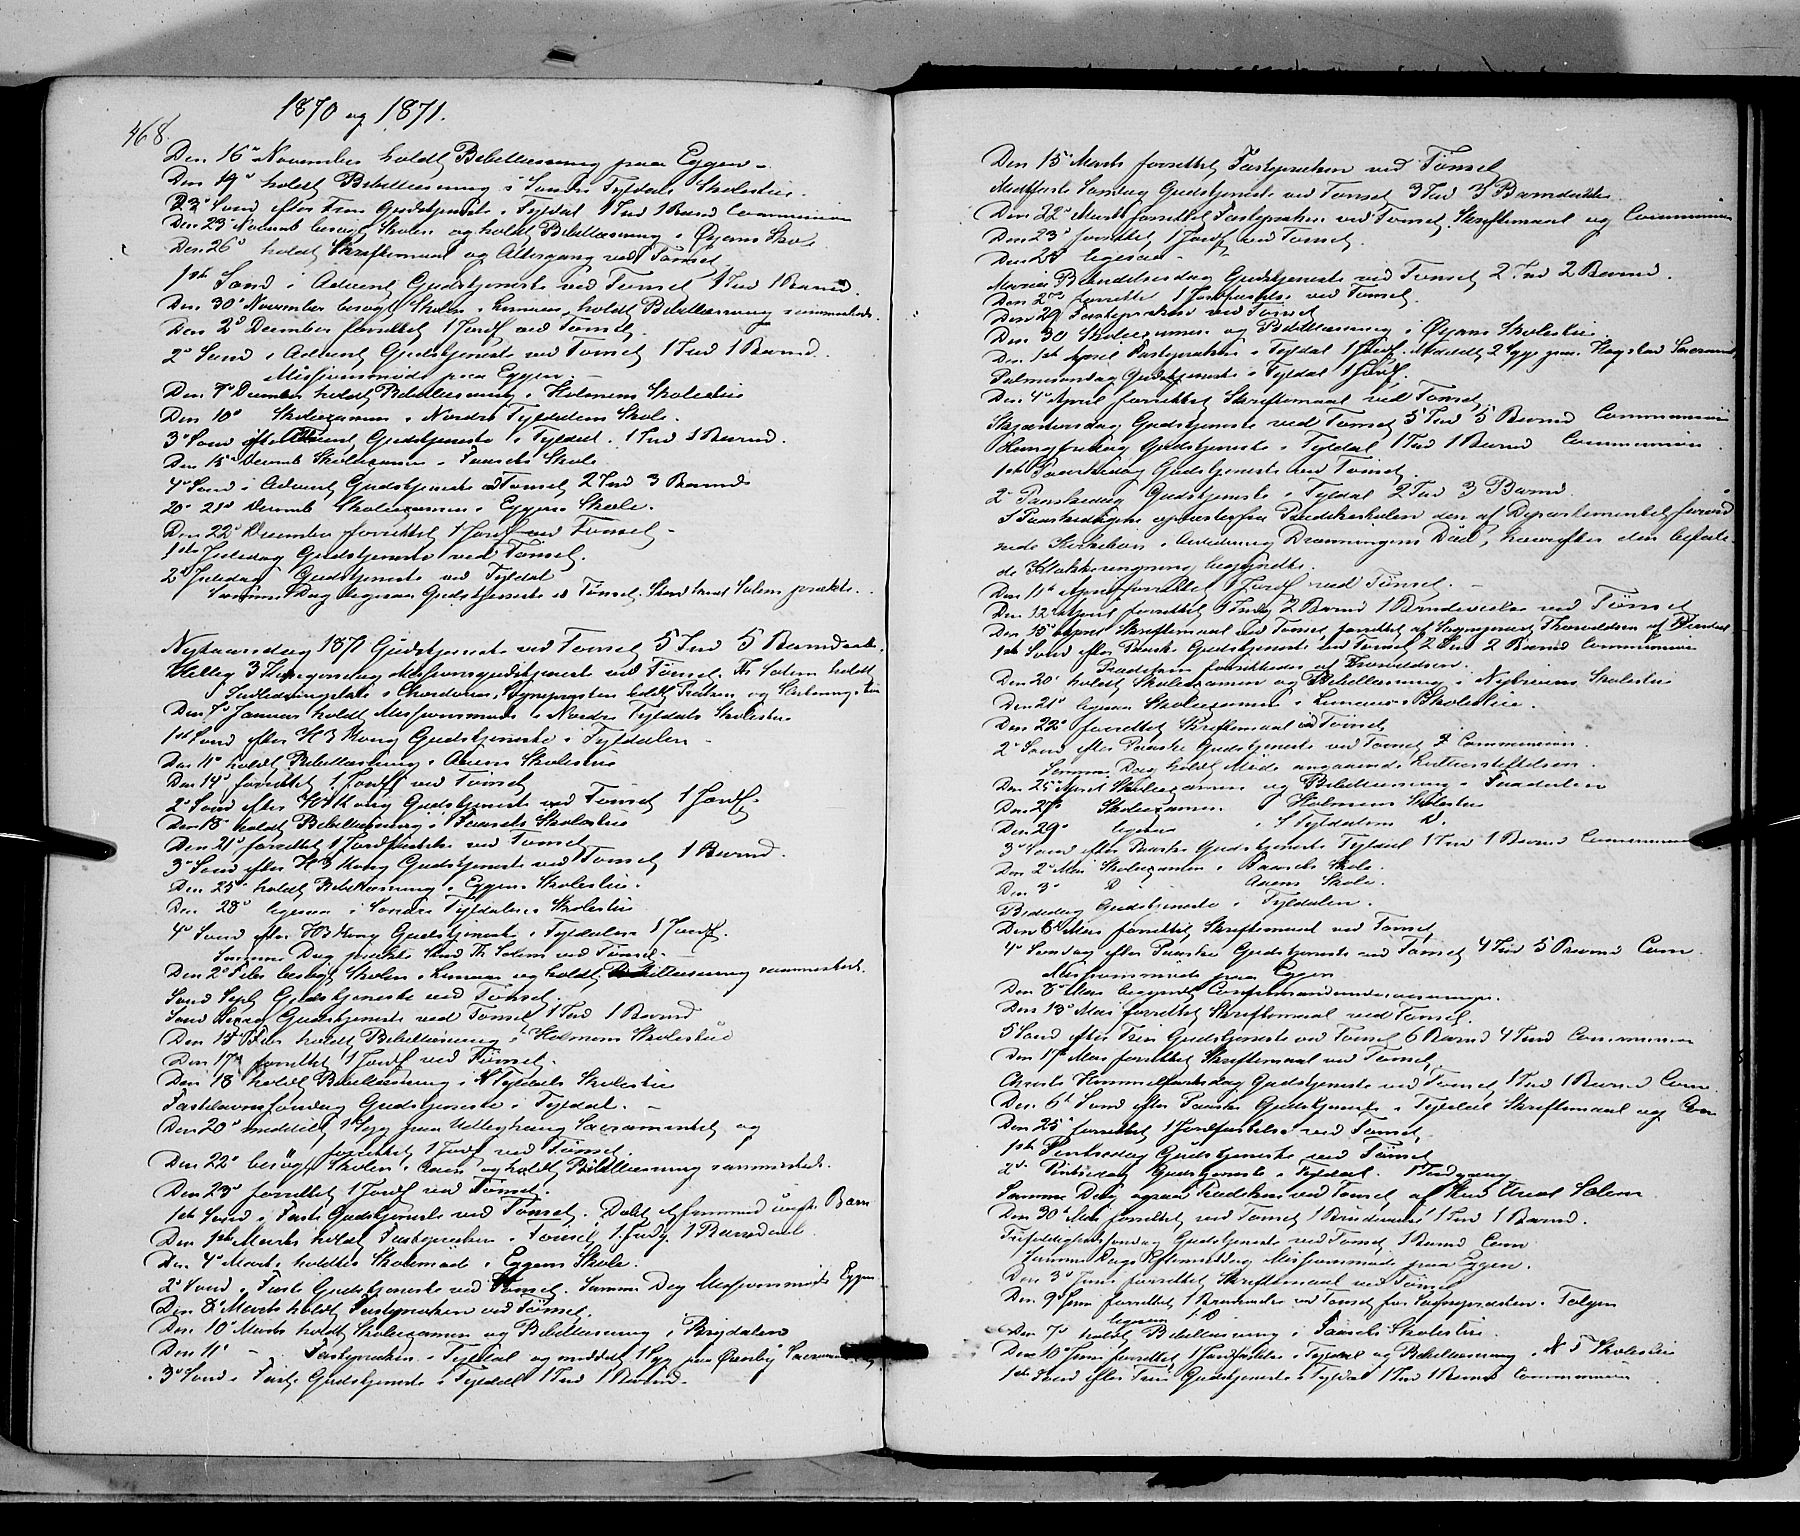 468.
1870 og 1871.
Den 16de November holdt Bibellæsning paa Eggen -
Den 19de holdt Bibellæsning i Søndre Tyldals Skolestue.
23de Sønd efter Trin Gudstjeneste i Tyldal 1 Ind 1 Barnd Communion
Den 23de Novemb besøgt Skolen og holdt Bibellæsning i Øiens Skole
Den 26de holdt Skriftemaal og Altergang ved Tønset
1ste Sønd i Advent Gudstjeneste ved Tønset 1 Ind 1 Barnd.
Den 30te November besøgt Skolen i holdt Bibellæsning sammesteds.
Den 2den December forrettet 1 Jordf ved Tønset
2den Sønd i Advent Gudstjeneste ved Tønset 1 Ind 1 Barnd.
Missionsmøde paa Eggen. -
Den 7de December holdt Bibellæsning i Holmens Skolestue
Den 10de Skoleexamen i Nordre Tyldalens Skole.
3die Sønd i Advent Gudstjeneste i Tyldal. 1 Ind 1 Barnd.
Den 15de Decemb Skoleexamen i Faasets Skole
4de Sønd i Advent Gudstjeneste ved Tønset 2 Ind 3 Barnd
20de 21de Decemb Skoleexamen i Eggens Skole.
Den 22de December forrettet 1 Jordf ved Tønset -
1ste Juledag Gudstjeneste ved Tønset.
2den Juledag Gudstjeneste ved Tyldal
Samme Dag ligesaa Gudstjeneste ved Tønset. Stud Salem prædikte.
Nytaarsdag 1871 Gudstjeneste ved Tønset 5 Ind 5 Barnd
Hellig 3 Kongersdag Missionsgudstjeneste ved Tønset. Th Salem holdt
Indledningstale i Chordøren, Sognepresten holdt Præken og Slutningstale
Den 7de Januar holdt Missionsmøde i Nordre Tyldals Skolestue
1ste Sønd efter H 3 Kong Gudstjeneste i Tyldalen -
Den 11te holdt Bibellæsning i Aaens Skolestue
Den 14de forrettet 1 Jordf ved Tønset
2den Sønd efter H 3 Kong Gudstjeneste ved Tønset 1 Jordf.
Den 18de holdt Bibellæsning i Faasets Skolestue
Den 21de forrettet 1 Jordfæstelse ved Tønset
3die Sønd efter H 3 Kong Gudstjeneste ved Tønset 1 Barnd.
Den 25de holdt Bibellæsning i Eggens Skolestue.
Den 28de ligesaa i Søndre Tyldalens Skolestue
4de Sønd efter H 3 Kong Gudstjeneste i Tyldalen 1 Jordf.
Samme Dag prædikte Stud Th Salem ved Tønset. -
Den 2den Febr besøgt Skolen i og holdt Bibellæsning sammesteds.
Sønd Sept Gudstjeneste ved Tønset.
Sønd Sexag Gudstjeneste ved Tønset 1 Ind 1 Barnd
Den 15de Febr holdt Bibellæsning i Holmens Skolestue
Den 17de forrettet 1 Jordf ved Tønset.
Den 18 holdt Bibellæsning i N Tyldals Skolestue
Fastelavnssøndag Gudstjeneste i Tyldal. -
Den 20de meddelt 1 Syg paa Sacramentet og
forrettet 1 Jordf ved Tønset.
Den 22de besøgt Skolen i Aaen og holdt Bibellæsning sammesteds.
Den 23de forrettet 1 Jordf ved Tønset.
1ste Sønd i Faste Gudstjeneste ved Tønset. Døbt et hjemmed uægte Barn
Den 1ste Marts holdt Fastepræken i Tønset, 1 Indg. 1 Barnedaab
Den 4de Marts holdtes Skolemøde i Eggens Skole.
2den Sønd i Faste Gudstjeneste ved Tønset. Samme Dag Missionsmøde Eggen
Den 8de Marts holdt Fastepræken ved Tønset.
Den 10de Marts holdt Skoleexamen og Bibellæsning i Brydalen
Den 11te - Fastepræken i Tyldal og meddelt 1 Syg paa Sacramentet
3die Sønd i Faste Gudstjeneste i Tyldal 1 Ind 1 Barnd.
Den 15de Marts forrettet Fastepræken ved Tønset
Midfaste Søndag Gudstjeneste ved Tønset 3 Ind 3 Barndaabe
Den 22de Marts forrettet Fastepræken ved Tønset. Skriftemaal og Communion
Den 23de forrettet 1 Jordf ved Tønset.
Den 24de ligesaa -
Mariæ Bebudelsesdag Gudstjeneste ved Tønset 2 Ind 2 Barnd.
Den forrettet 1 Jordfæstelse ved Tønset.
Den 29 Fastepræken ved Tønset
Den 30 Skoleexamen og Bibellæsning i Øiens Skolestue.
Den 1ste April Fastepræken i Tyldal 1 Jordf. Meddelt 2 Syge paa Hagstad Sacrament
Palmesøndag Gudstj i Tyldal 1 Jordf.
Den 4de April forrettet Skriftemaal ved Tønset
Skjærtorsdag Gudstjeneste ved Tønset 5 Ind 5 Barnd Communion
Langfredag Gudstjeneste i Tyldal 1 Ind 1 Barnd Communion
1ste Paaskedag Gudstjeneste ved Tønset
2den Paaskedag Gudstjeneste i Tyldal 2 Ind 3 Barnd.
I Paaskedagene oplæstes fra Prædikestolen den af Departementet foreord
nede Kirkebøn i Anledning Dronningens Død, hvorefter den befale
de Klokkeringning begyndte.
Den 11te April forrettet 1 Jordf ved Tønset. -
Den 12te April forrettet 1 Indg 2 Barnd 1 Brudevielse ved Tønset
Den 15de April Skriftemaal ved Tønset, forrettet af Sognepræst Thorvaldsen af
1ste Sønd efter Paaske Gudstjeneste ved Tønset 2 Ind 2 Barnd Communion
Prædiken forrettedes af Thorvaldsen.
Den 20de holdt Skoleexamen og Bibellæsning i Nyhusens Skolestue
Den 21de ligesaa Skoleexamen i Skolestue.
Den 22de forrettet Skriftemaal ved Tønset
2den Sønd efter Paaske Gudstjeneste ved Tønset Communion.
Samme Dag holdt Møde angaaende
Den 25de April Skoleexamen og Bibellæsning i
Den 27de Skoleexamen i Holmens Skolestue
Den 29de ligesaa i S Tyldalens D.
3die Sønd efter Paaske Gudstjeneste Tyldal 1 Ind 1 Barnd Communion
Den 2den Mai Skoleexamen i Faasets Skole.
Den 3die D Aaens Skole.
Bededag Gudstjeneste i Tyldalen.
Den 6te Mai forrettet Skriftemaal ved Tønset
4de Søndag efter Paaske Gudstjeneste ved Tønset 4 Ind 5 Barnd Com.
Missionsmøde paa Eggen
Den 8de Mai begyndt Confirmandundervisningen.
Den 13de Mai forrettet Skriftemaal ved Tønset.
5 Sønd efter Trin Gudstjeneste ved Tønset 6 Barnd 4 Ind Communion
Den 17de Mai forrettet Skriftemaal ved Tønset,
Christi Himmelfartsdag Gudstjeneste ved Tønset, 1 Ind 1 Barnd Com.
Den 6te Sønd efter Paaske Gudstjeneste i Tyldal Skriftemaal og Com
Den 25de forrettet 1 Jordfæstelse ved Tønset,
1ste Pintsedag Gudstjeneste ved Tønset
2den Pintsedag Gudstjeneste i Tyldal. 1 Indgang
Samme Dag ogsaa Prædiken ved Tønset, af Stud Salem.
Den 30te Mai forrettet ved Tønset 1 Brudevielse 1 Ind 1 Barnd.
Trefoldighedssøndag Gudstjeneste ved Tønset, 1 Barnd Com
Samme Dags Eftermiddag Missionsmøde paa Eggen.
Den 3die Juni forrettet Skriftemaal ved Tønset
Den Juni forrettet 1 Brudevielse ved Tønset for Sognepræsten i Tolgen
ligesaa 1 D
Den 7de holdt Bibellæsning i Faasets Skolestue.
Den 10de Juni forrettet 1 Jordfæstelse i Tyldal og Bibellæsning i N T Skolestue
1ste Sønd efter Trin Gudstjeneste i Tyldal 1 Ind 1 Barnd Communion